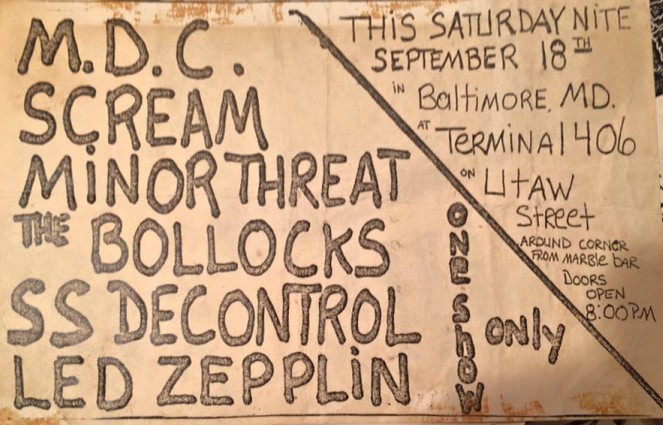 M.D.C.
SCREAM
MiNOR THREAT
THE BOLLOCKS
SS DECONTROL
LED ZEPPLiN
THiS SATURDAY NiTE
SEPTEMBER 18TH
iN Baltimore, MD.
AT TERMiNAl 406
ON UtAW
Street
AROUND CORNER
FROM MARBLE bAR
DOORS
OPEN
8:00PM
ONE ShOW
ONly